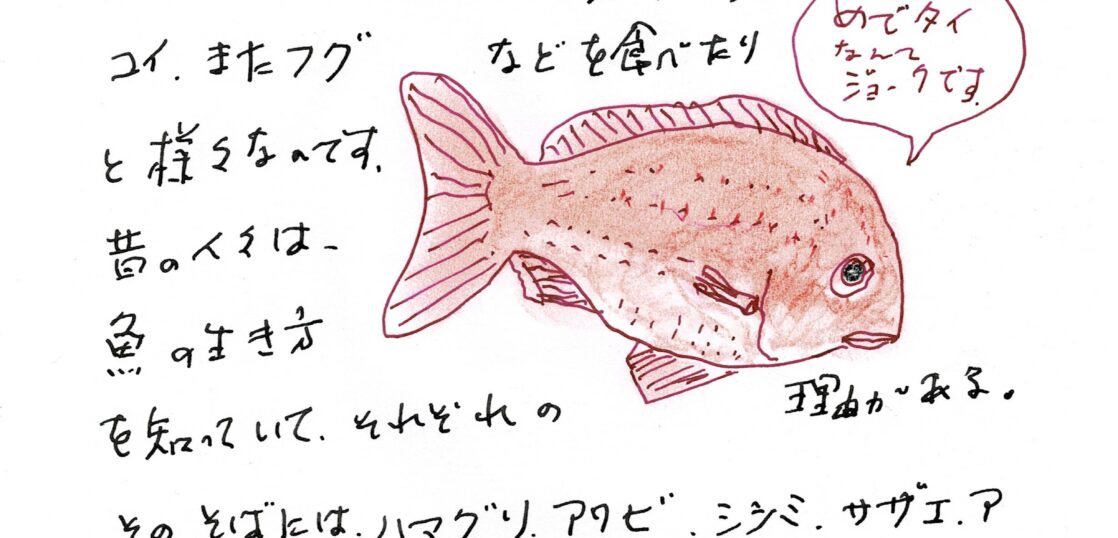 コイ、またフグ などを食べたり
と様々なのです。
昔の人々は、
魚の生き方
を知っていて、それぞれの 理由がある。
そのそばには、ハマグリ、アワビ、シジミ、サザエ、ア
めでタイ
なんて
ジョークです。